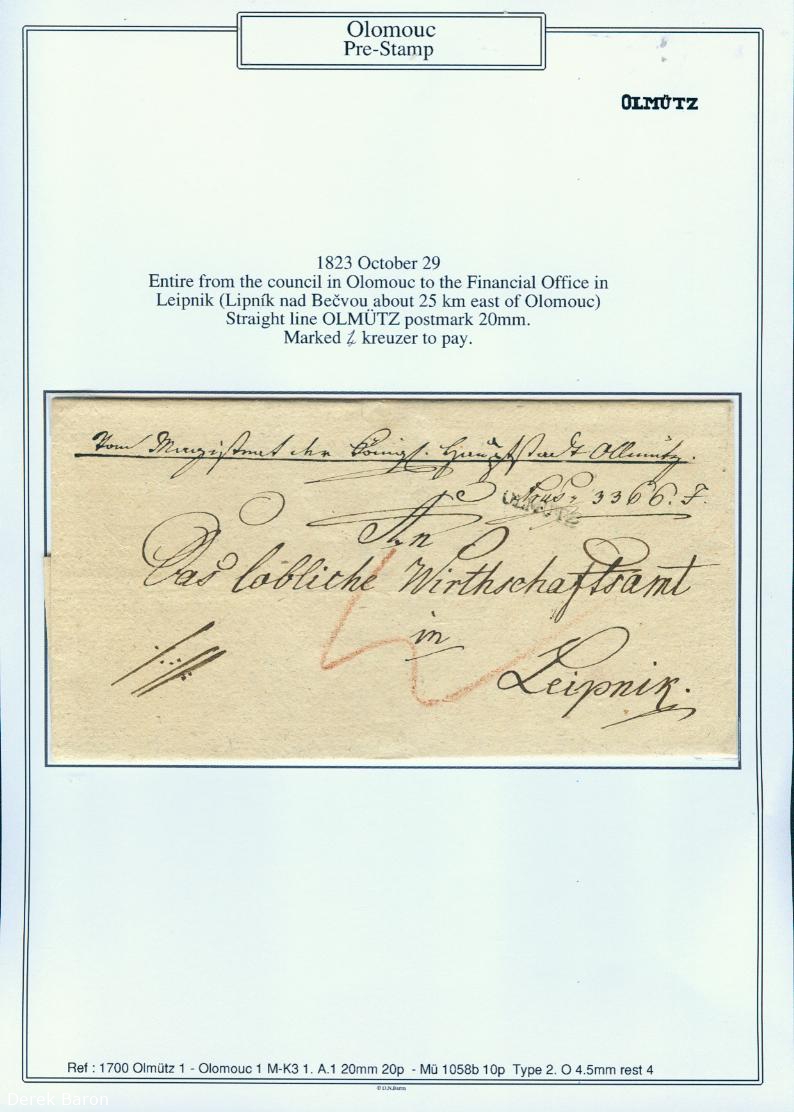 Olomouc
Pre-Stamp
OLMÜTZ
1823 October 29
Entire from the council in Olomouc to the Financial Office in
Leipnik (Lipník nad Bečvou about 25 km east of Olomouc)
Straight line OLMÜTZ postmark 20mm.
Marked kreuzer to pay.
Vom Magistrat der Königl. Hauptstadt Ollmütz.
3366. J.
OLMÜTZ
An
Das löbliche Wirthschaftsamt
in
Leipnik.
Ref : 1700 Olmütz 1 - Olomouc 1 M-K3 1. A.1 20mm 20p - Mü 1058b 10p Type 2. O 4.5mm rest 4
© D.N.Baron
Derek Baron